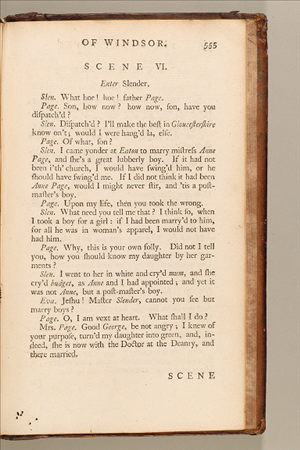 OF WINDSOR. 555
SCENE VI.
Enter Slender.
Slen. What hoe! hoe! father Page.
Page. Son, how now? how now, son, have you
diſpatch'd?
Slen. Diſpatch'd? I'll make the beſt in Glouceſterſhire
know on't; would I were hang'd la, elſe.
Page. Of what, ſon?
Slen. I came yonder at Eaton to marry miſtreſs Anne
Page, and ſhe's a great lubberly boy. If it had not
been i'th' church, I would have ſwing'd him, or he
ſhould have ſwing'd me. If I did not think it had been
Anne Page, would I might never ſtir, and 'tis a poſt-
maſter's boy.
Page. Upon my life, then you took the wrong.
Slen. What need you tell me that? I think ſo, when
I took a boy for a girl: if I had been marry'd to him,
for all he was in woman's apparel, I would not have
had him.
Page. Why, this is your own folly. Did not I tell
you, how you ſhould know my daughter by her gar-
ments?
Slen. I went to her in white and cry'd mum, and ſhe
cry'd budget, as Anne and I had appointed; and yet it
was not Anne, but a poſt-maſter's boy.
Eva. Jeſhu! Maſter Slender, cannot you ſee but
marry boys?
Page. O, I am vext at heart. What ſhall I do?
Mrs. Page. Good George, be not angry; I knew of
your purpoſe, turn'd my daughter into green, and, in-
deed, ſhe is now with the Doctor at the Deanry, and
there married.
SCENE